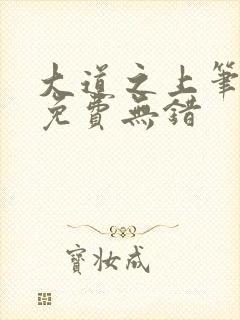 大道之上筆
免費無錯
寶妝成